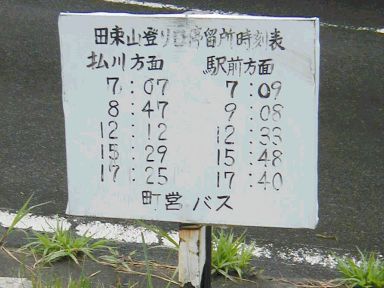 田束山登り口停留所時刻表
払川方面 駅前方面
7:07 7:09
8:47 9:08
12:12 12:33
15:29 15:48
17:25 17:40
町営バス